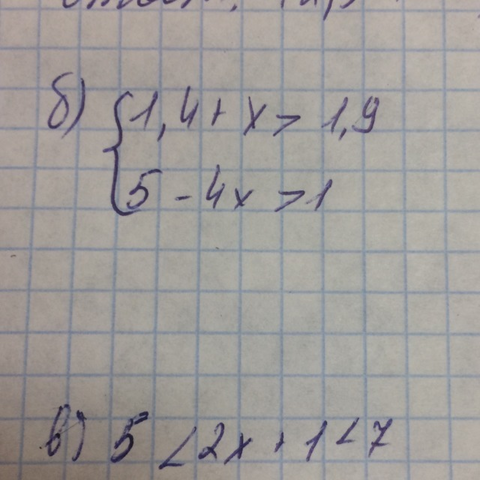 б) { 1,4 + x > 1,9
5 - 4x > 1
в) 5 < 2x + 1 < 7